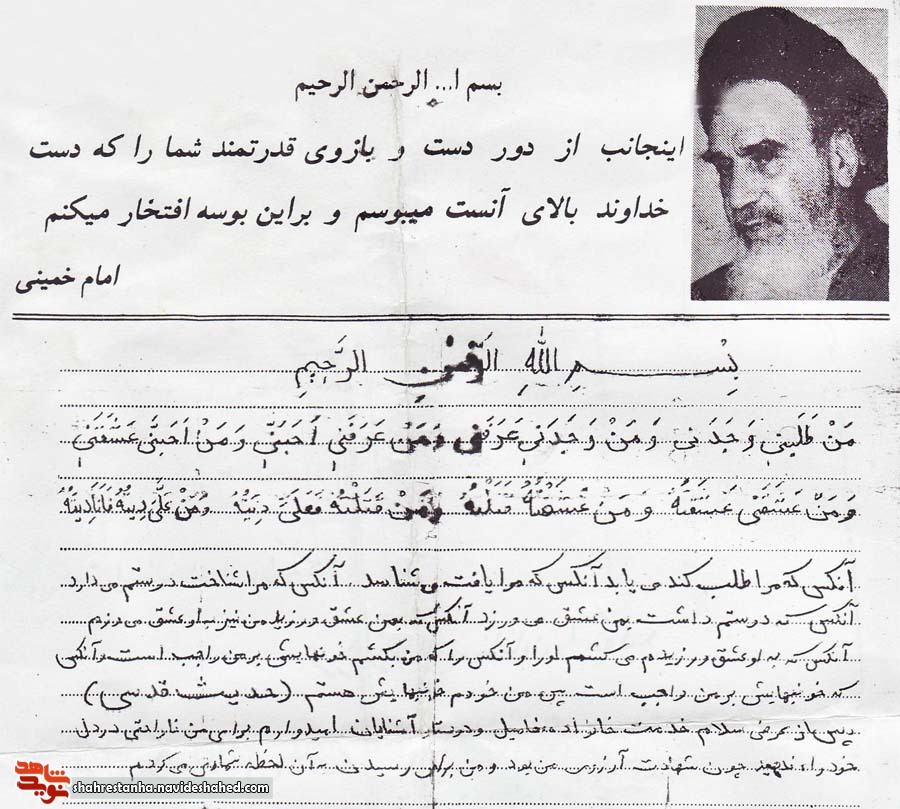 بسم ا... الرحمن الرحیم
اینجانب از دور دست و بازوی قدرتمند شما را که دست
خداوند بالای آنست میبوسم و براین بوسه افتخار میکنم
امام خمینی
بِسْمِ اللهِ الرَّحْمنِ الرَّحِیمِ
مَنْ طَلَبَنی وَجَدَنی وَ مَنْ وَجَدَنی عَرَفَنی وَ مَنْ عَرَفَنی اَحَبَنّی وَ مَنْ اَحَبَنّی عَشَقَنی
وَ مَنْ عَشَقَنی عَشَقتَهُ وَ مَنْ عَشَقتَهُ قَتَلْتَهُ وَ مَنْ قَتَلْتَهُ فَعَلَیَّ دِیَتُهُ وَ مَنْ عَلَیَّ دِیتُهُ فَاَنَا دِیَتُهُ
آنکس که مرا طلب کند می یابد آنکس که مرا یافت می شناسد آنکس که مرا شناخت دوستم می دارد
آنکس که دوستم داشت بمن عشق می ورزد آنکس که بمن عشق ورزید من نیز به او عشق می ورزم
آنکس که به او عشق ورزیدم می کشم او را و آنکس را که من بکشم خونبهایش بر من واجب است و آنکس
که خونبهایش بر من واجب است پس من خودم خونبهایش هستم (حدیث قدسی)
پس از عرض سلام خدمت خانواده فامیل و دوستان آشنایان امیدوارم برای من ناراحتی در دل
خود راه ندهید چون شهادت آرزوی من بود و من برای رسیدن به آن لحظه شماری می کردم
نوید شاهد
shahrestanha.navideshahed.com